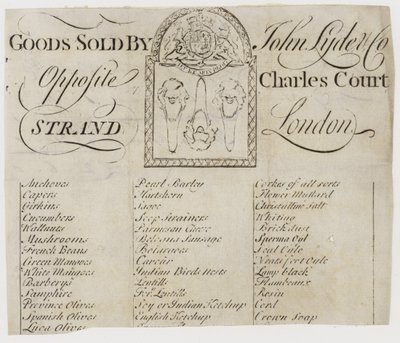 GOODS SOLD BY
John Lyde & Co
Opposite
Charles Court
STRAND
London
Anchoves
Capers
Girkins
Cucumbers
Wallnuts
Mushrooms
French Beans
Green Mangoes
White Mangoes
Barberys
Samphire
Provence Olives
Spanish Olives
Luca Olives
Pearl Barley
Hartshorn
Sago
Soop Strainers
Parmesan Cheese
Bolonia Sausage
Botargoes
Cavear
Indian Bird Nests
Lentills
Soy or Indian Ketchup
English Ketchup
Corkes of all sorts
Flower Mustard
Christalline Salt
Whiting
Brick dust
Sperma Oyl
Seal Oyle
Neats foot Oyle
Lamp black
Flambeaux
Rosin
Cord
Crown Soap